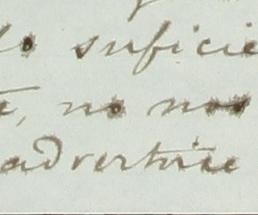 lo suficie
, no nos
advertire